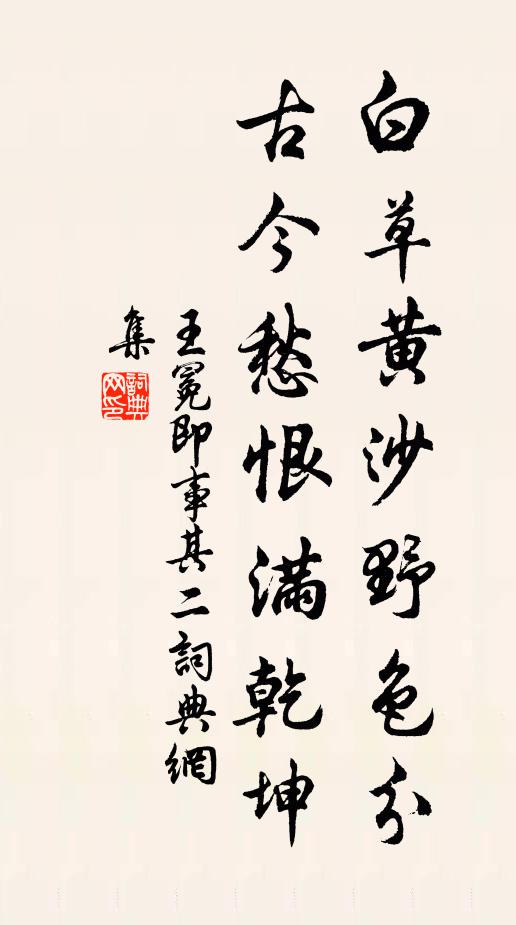 白草黄沙野色分
古今愁恨满乾坤
王冕即事其二詞典網
集
詞典网印